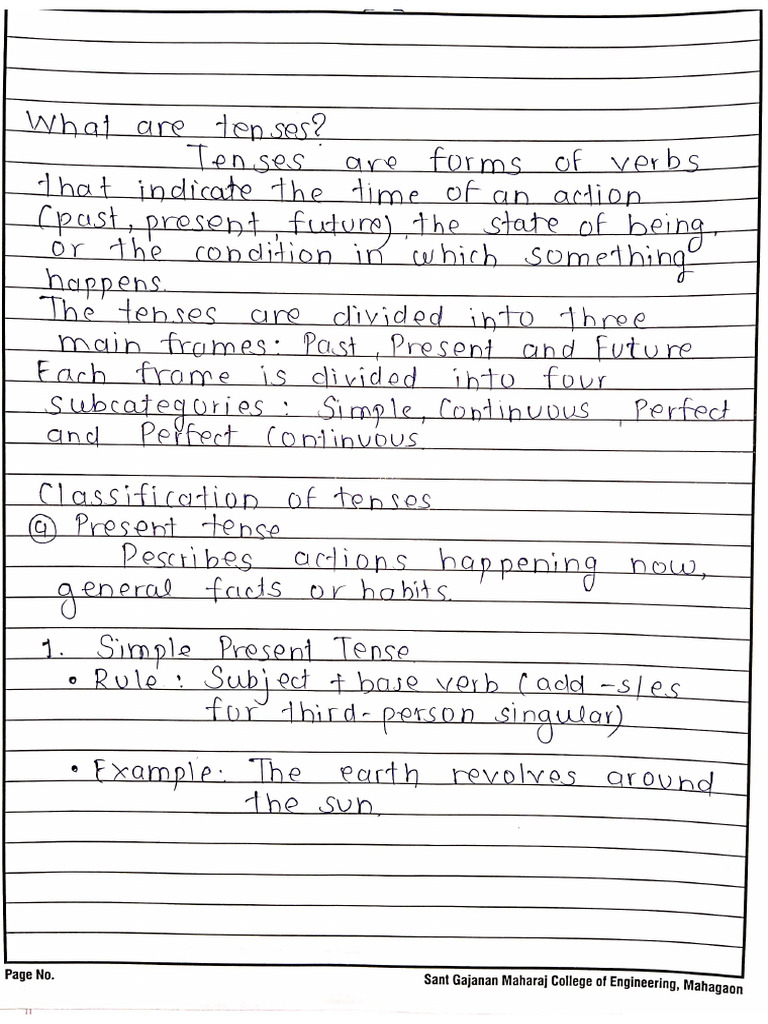 What are tenses?
Tenses are forms of verbs
that indicate the time of an action
(past, present, future), the state of being,
or the condition in which something
happens.
The tenses are divided into three
main frames: Past, Present and Future
Each frame is divided into four
subcategories: Simple, Continuous, Perfect
and Perfect Continuous.
Classification of tenses
(a) Present tense
Describes actions happening now,
general facts or habits.
1. Simple Present Tense
• Rule: Subject + base verb (add -s/es
for third-person singular)
• Example: The earth revolves around
the sun.
Page No.
Sant Gajanan Maharaj College of Engineering, Mahagaon